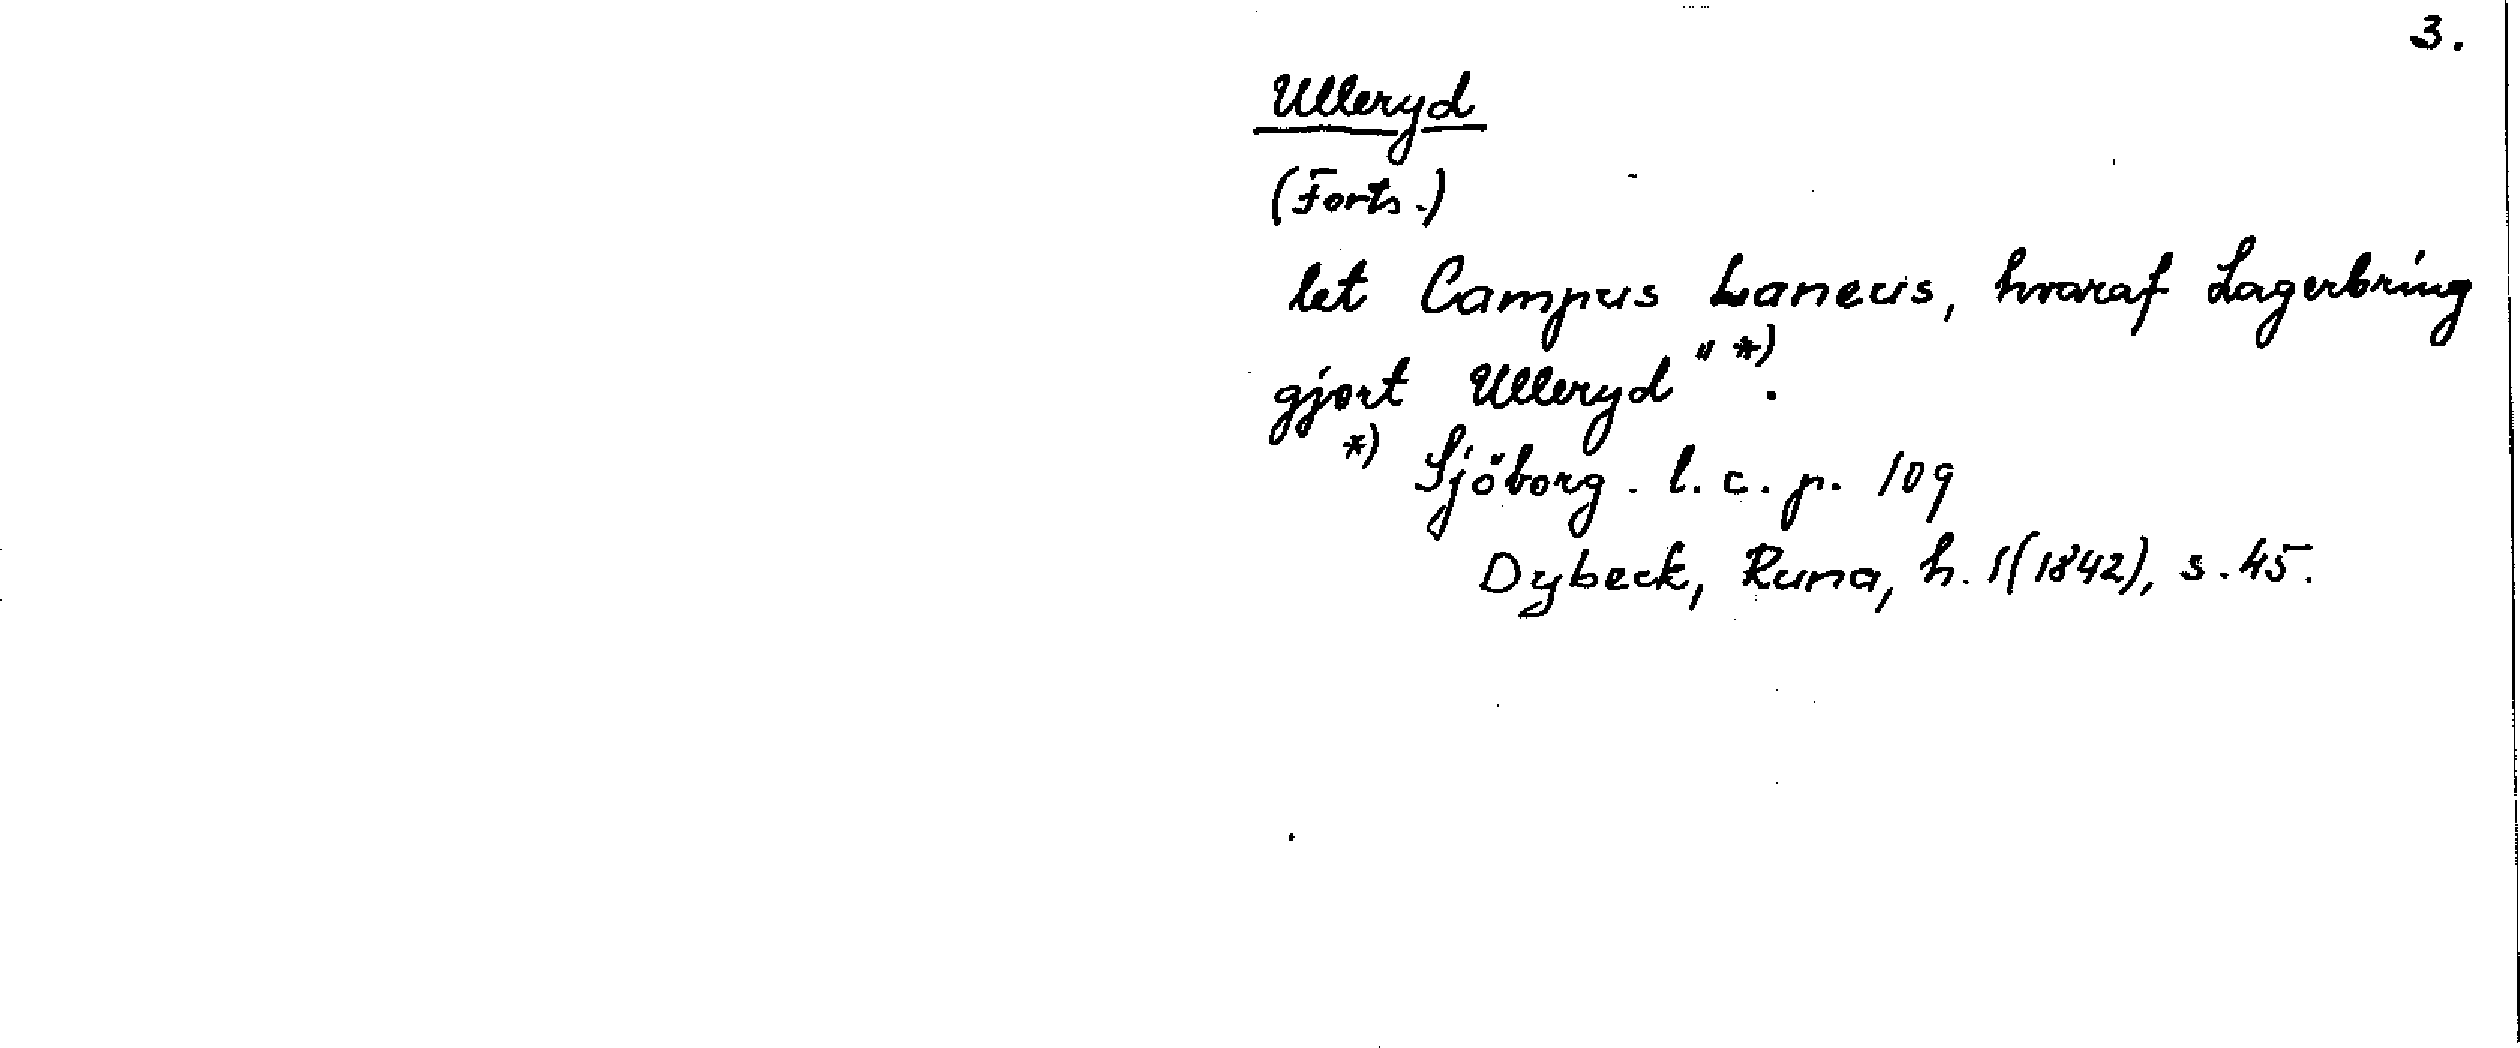 3.
Ulleryd
(Forts.)
let Campus Laneus, hvaraf Lagerbring
gjort Ulleryd" *).
*) Sjöborg. l. c. p. 109
Dybeck, Runa, h. 1(1842), s. 45.